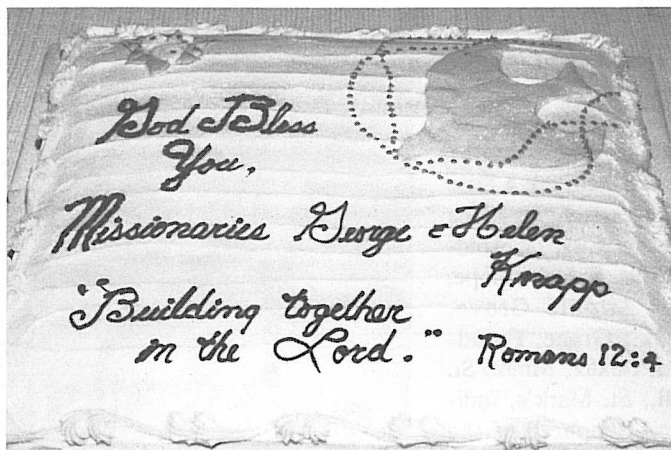 God Bless
You,
Missionaries George & Helen
Knapp
"Building together
in the Lord." Romans 12:4